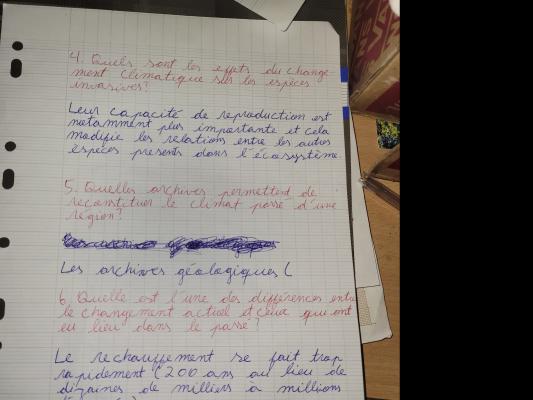 4. Quels sont les effets du change-
ment climatique sur les espèces
invasives?
Leur capacité de reproduction est
notamment plus importante et cela
modifie les relations entre les autres
espèces présents dans l'écosystème.
5. Quelles archives permettent de
reconstituer le climat passé d'une
région?
Les archives géologiques (
6. Quelle est l'une des différences entre
le changement actuel et ceux qui ont
eu lieu dans le passé?
Le rechauffement se fait trop
rapidement (200 ans au lieu de
dizaines de milliers à millions